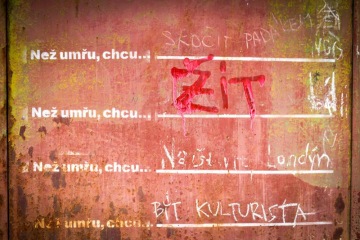 Než umřu, chcu... SKOČIT PADÁKEM
Než umřu, chcu... ŽÍT
Než umřu, chcu... Londýn
Než umřu, chcu... BÝT KULTURISTA